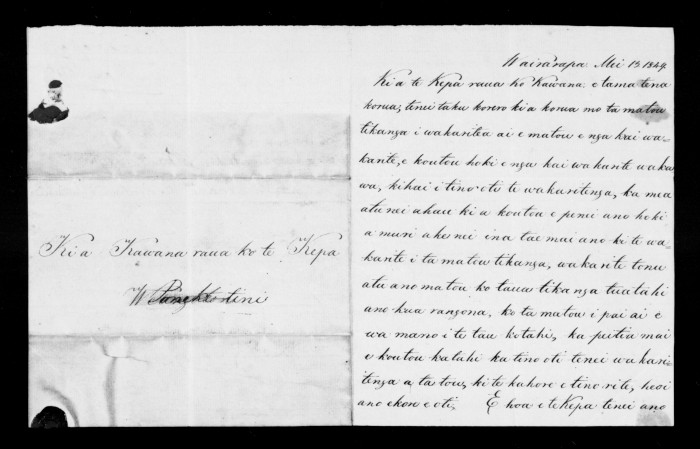 Ki a Kawana raua ko te Kepa
W
Wairarapa Mei 15 1849.
Ki a te Kepa raua ko Kawana. e tama tena
korua; tenei taku korero ki a korua mo ta matou
tikanga i wakaritea ai e matou e nga kai wa-
karite, e koutou hoki e nga kai wakarite waka
wa, kihai i tino oti te wakaritenga, ka mea
atu nei ahau ki a koutou e penei ano hoki
a muri ake nei ina tae mai ano ki te wa
karite i ta matou tikanga, wakarite tonu
atu ano matou ko taua tikanga tuatahi
ano kua rangona, ko ta matou i pai ai e
wa mano i te tau kotahi, ka puta mai
e koutou katahi ka tino oti tenei wakari-
tenga a ta tou, ki te kahore e tino rite, heoi
ano ekore e oti, E hoa e te Kepa tenei ano